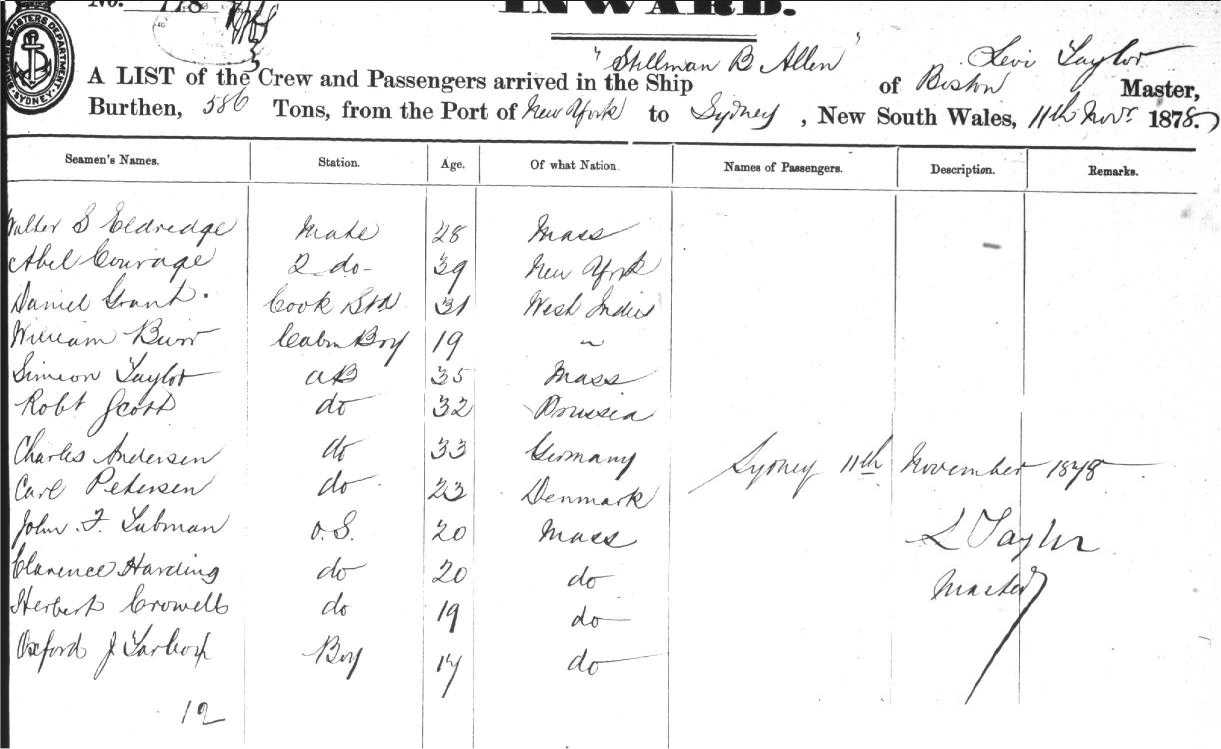 No. 178
INWARD.
SHIPPING MASTERS DEPARTMENT
SYDNEY
"Stillman B Allen"
Levi Taylor
A LIST of the Crew and Passengers arrived in the Ship of Boston Master,
Burthen, 586 Tons, from the Port of New York to Sydney, New South Wales, 11th Novr 1878.
Seamen's Names. Station. Age. Of what Nation. Names of Passengers. Description. Remarks.
Walter S Eldredge Mate 28 Mass
Abel Courage 2 do 39 New York
Daniel Grant Cook Std 31 West Indies
William Burr Cabin Boy 19 "
Simeon Taylor AB 35 Mass
Robt Scott do 32 Prussia
Charles Andersen do 33 Germany
Sydney 11th November 1878
Carl Petersen do 23 Denmark
John F. Tubman O.S. 20 Mass
L Taylor
Clarence Harding do 20 do
Master
Herbert Crowell do 19 do
Oxford J Boy 17 do
12